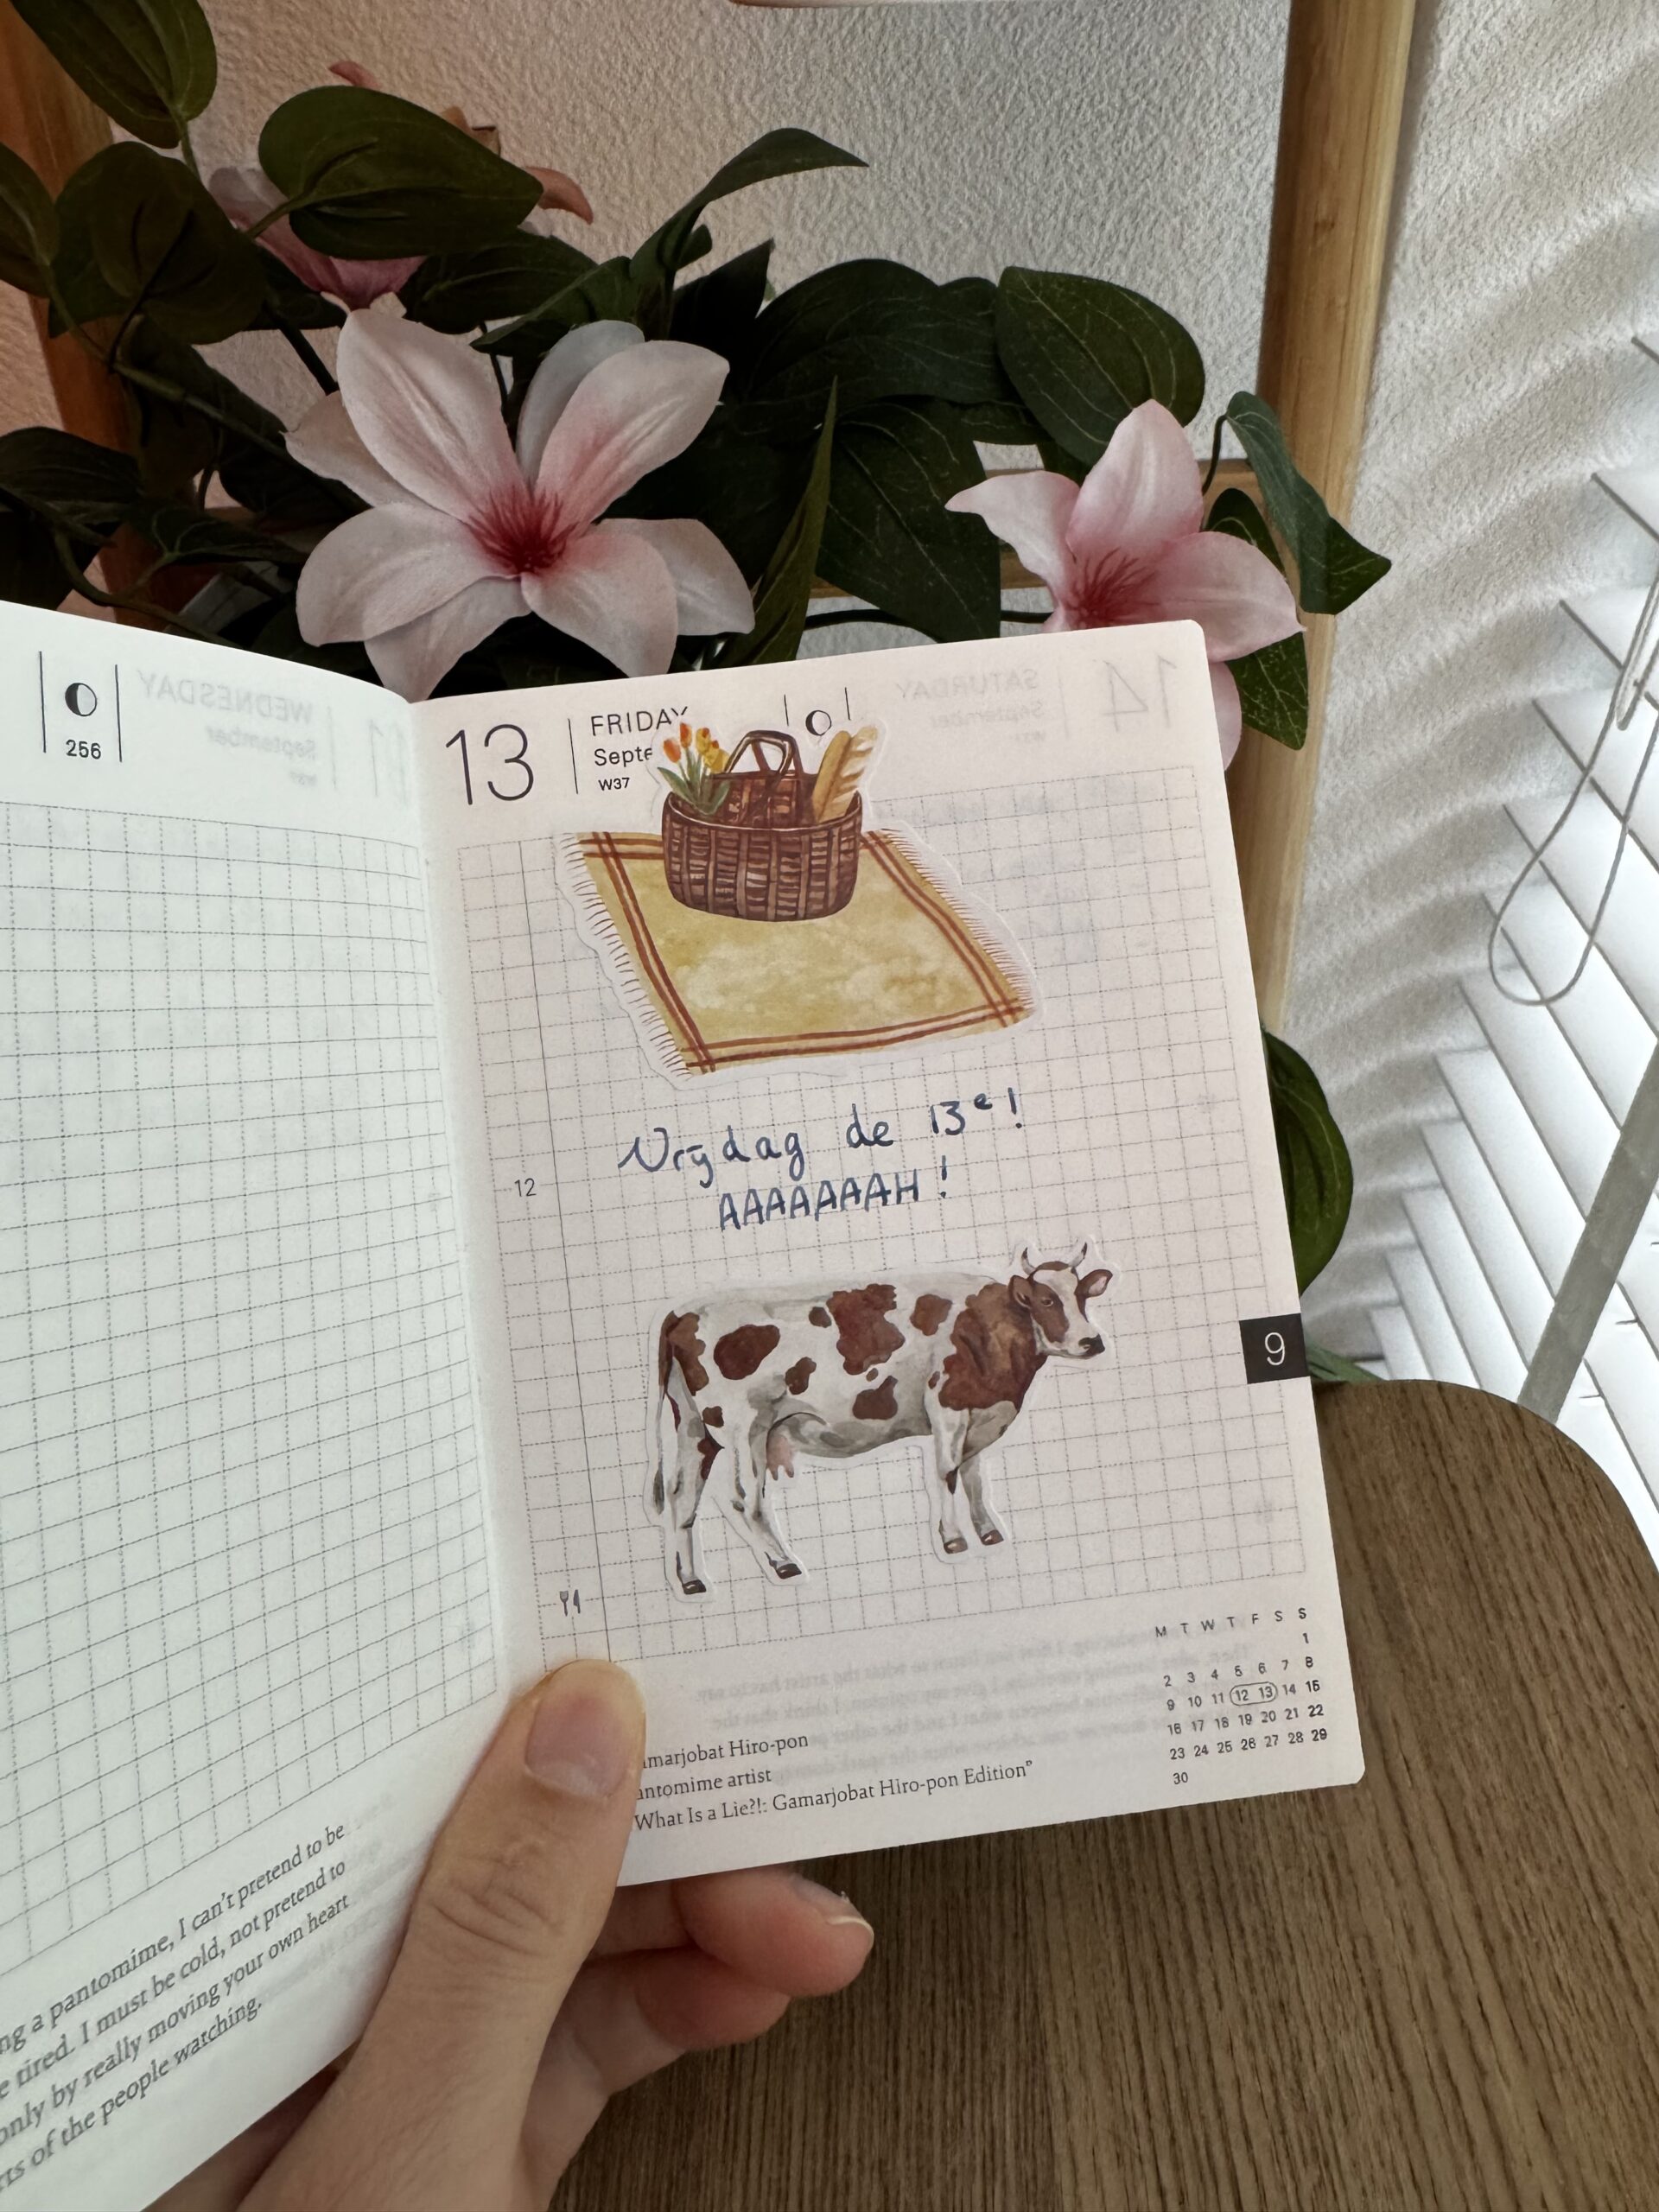 256
13
FRIDAY
W37
Vrijdag de 13e!
12
AAAAAAAH!
9
M T W T F S S
1
2 3 4 5 6 7 8
9 10 11 12 13 14 15
16 17 18 19 20 21 22
23 24 25 26 27 28 29
30
Hiro-pon
artist
What Is a Lie?!: Gamarjobat Hiro-pon Edition"
a pantomime, I can't pretend to be
tired. I must be cold, not pretend to
only by really moving your own heart
of the people watching.